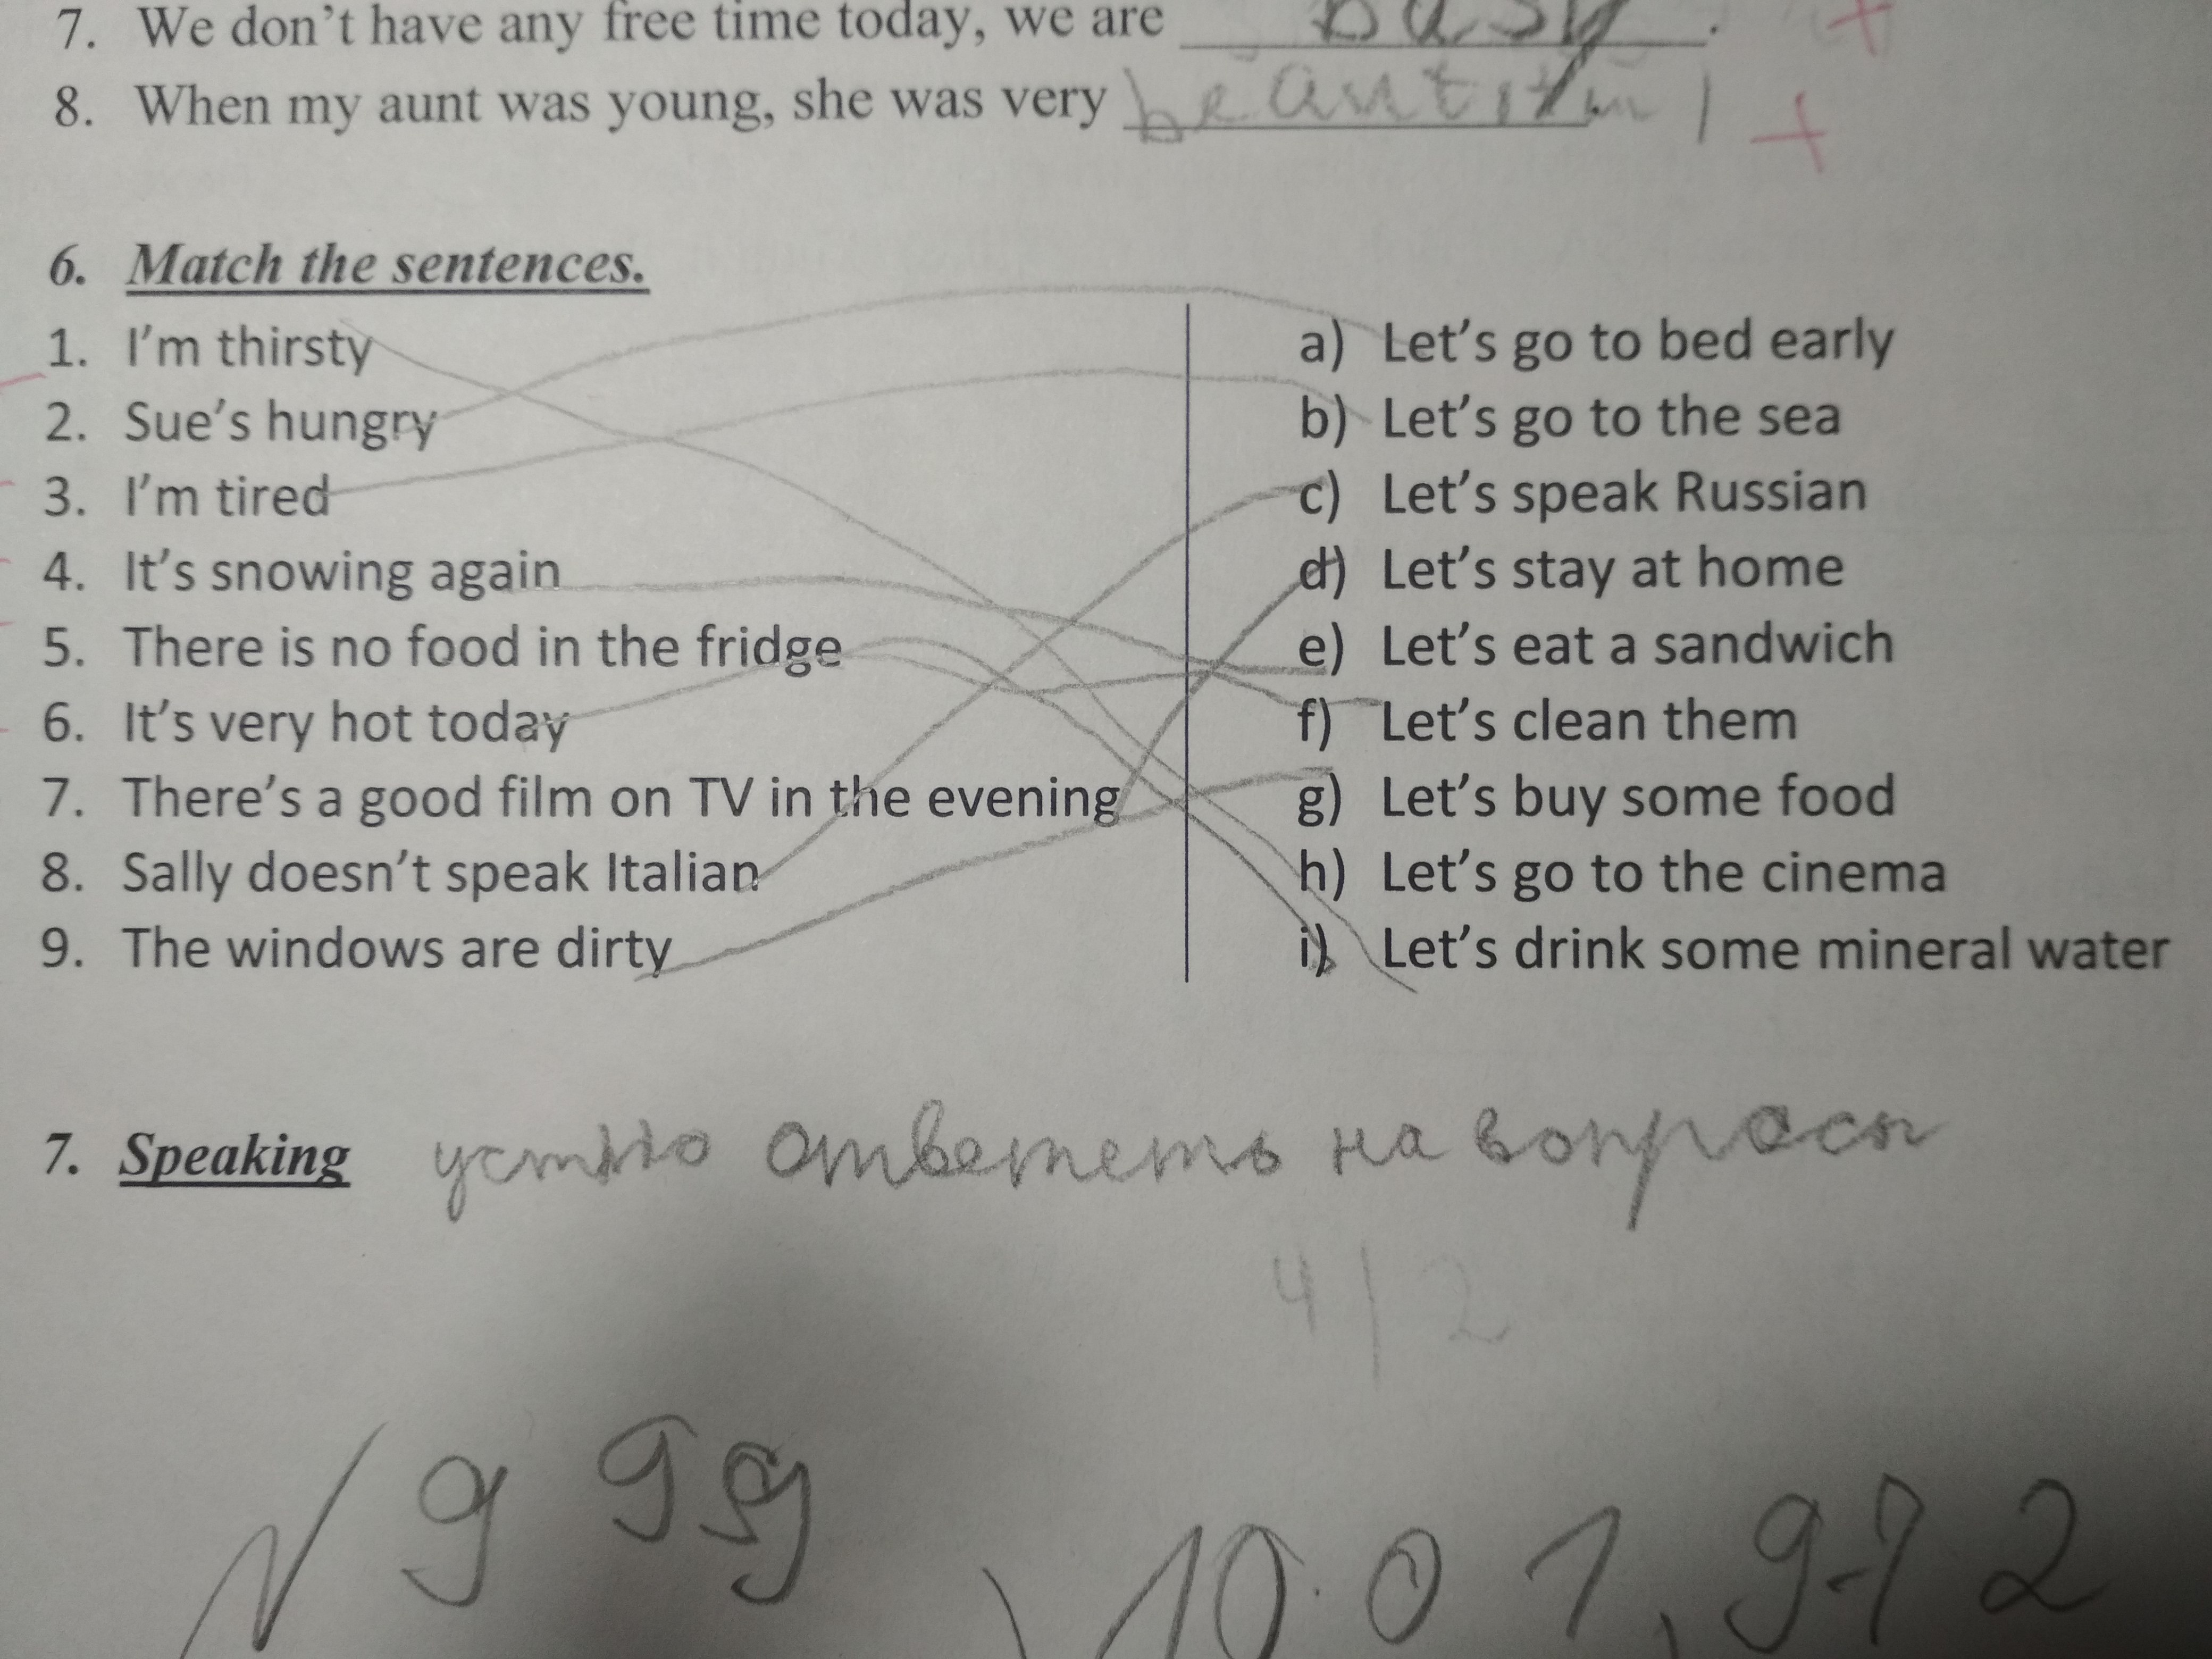 7. We don't have any free time today, we are busy.
8. When my aunt was young, she was very beautiful
6. Match the sentences.
1. I'm thirsty
2. Sue's hungry
3. I'm tired
4. It's snowing again
5. There is no food in the fridge
6. It's very hot today
7. There's a good film on TV in the evening
8. Sally doesn't speak Italian
9. The windows are dirty
a) Let's go to bed early
b) Let's go to the sea
c) Let's speak Russian
d) Let's stay at home
e) Let's eat a sandwich
f) Let's clean them
g) Let's buy some food
h) Let's go to the cinema
i) Let's drink some mineral water
7. Speaking устно ответеть на вопросы
4 | 2